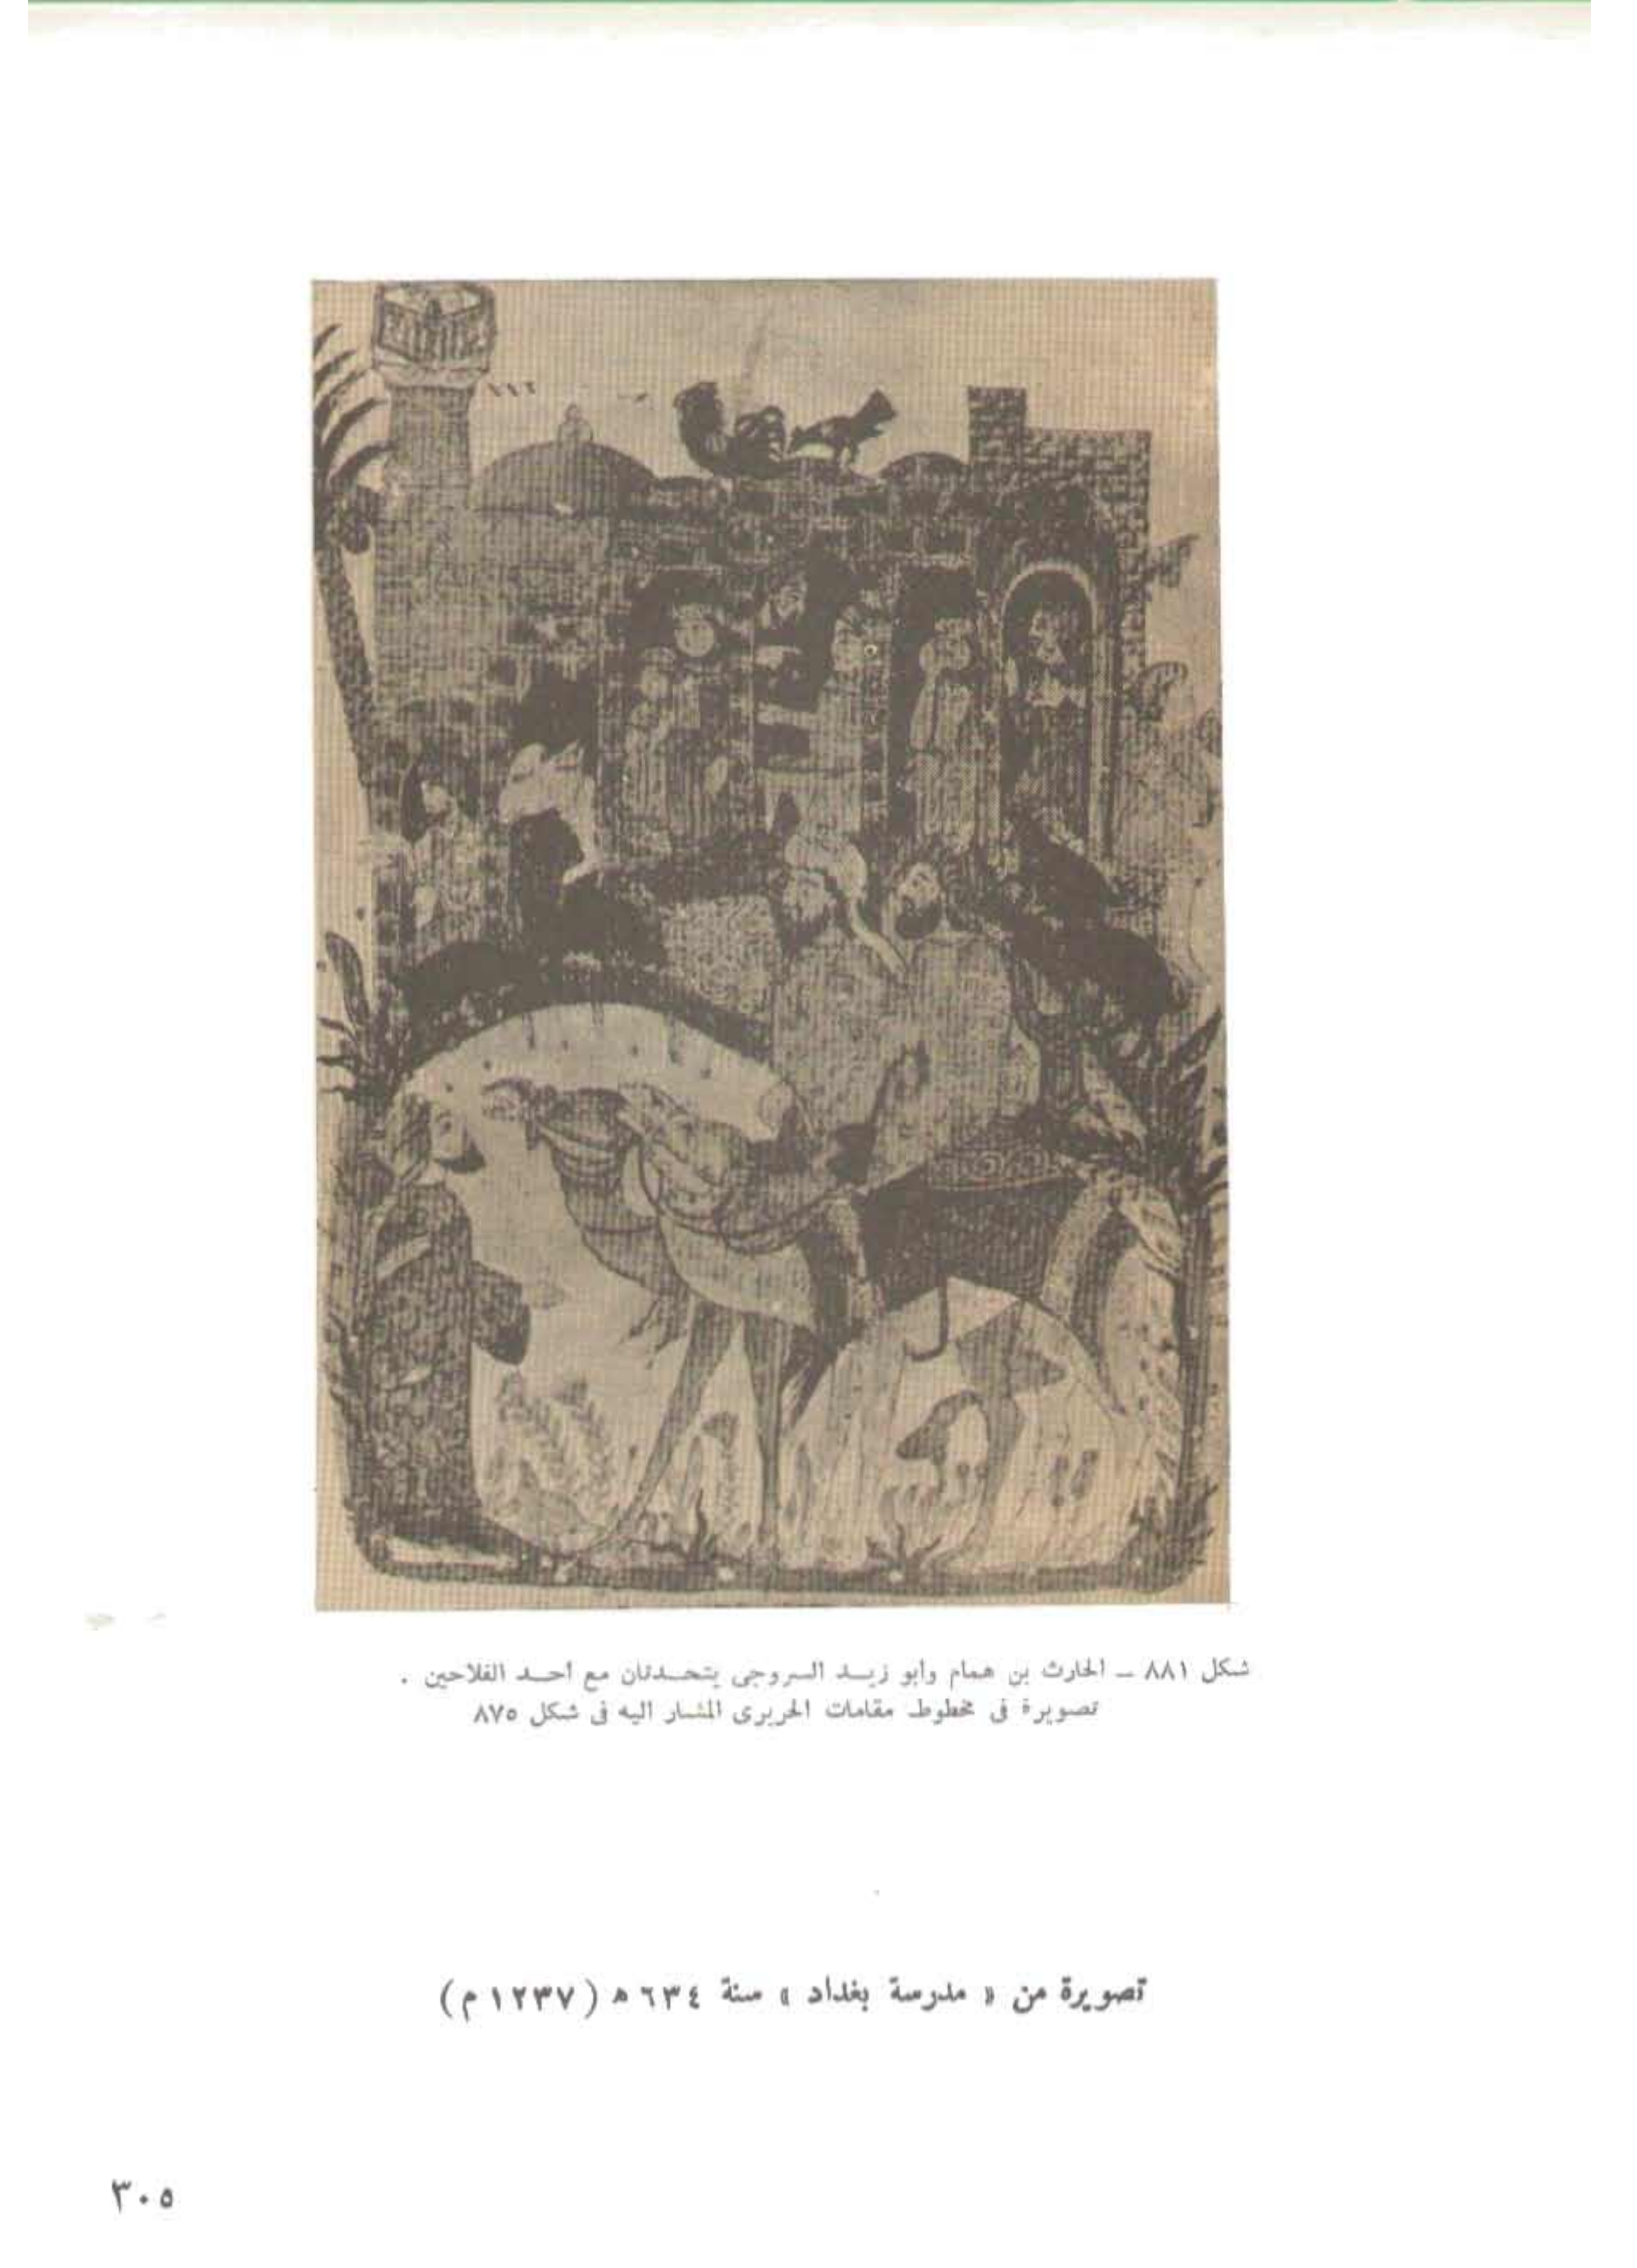 ١١٦
شكل ٨٨١ ــ الحارث بن همام وأبو زيــد السروجى يتحــدثان مع أحــد الفلاحين .
تصويرة فى مخطوط مقامات الحريرى المشار اليه فى شكل ٨٧٥
تصويرة من « مدرسة بغداد » سنة ٦٣٤ ه (١٢٣٧ م)
٣٠٥